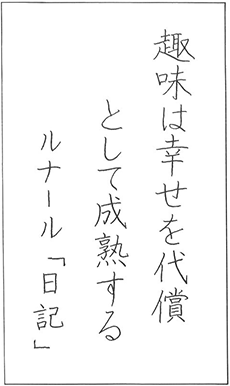 趣味は幸せを代償
として成熟する
ルナール「日記」